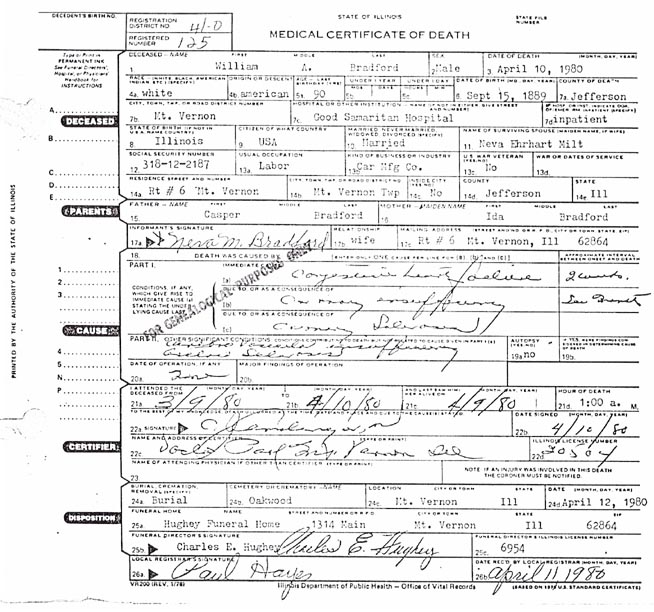 DECEDENT'S BIRTH NO.
REGISTRATION DISTRICT NO. 41-0
STATE OF ILLINOIS
STATE FILE NUMBER
REGISTERED NUMBER 125
MEDICAL CERTIFICATE OF DEATH
Type or Print in PERMANENT INK
See Funeral Directors', Hospital, or Physicians' Handbook for INSTRUCTIONS
DECEASED - NAME FIRST MIDDLE LAST SEX DATE OF DEATH (MONTH, DAY, YEAR)
1. William A. Bradford 2. Male 3. April 10, 1980
RACE (WHITE, BLACK, AMERICAN INDIAN, ETC.) (SPECIFY) ORIGIN OR DESCENT AGE - LAST BIRTHDAY (YRS) UNDER 1 YEAR UNDER 1 DAY DATE OF BIRTH (MO. DAY, YEAR) COUNTY OF DEATH
4a. white 4b. american 5a. 90 5b. MOS. DAYS 5c. HOURS MIN. 6. Sept 15, 1889 7a. Jefferson
DECEASED
CITY, TOWN, TWP, OR ROAD DISTRICT NUMBER HOSPITAL OR OTHER INSTITUTION - NAME (IF NOT IN EITHER, GIVE STREET AND NUMBER)
7b. Mt. Vernon 7c. Good Samaritan Hospital 7d. inpatient
STATE OF BIRTH (IF NOT IN U.S.A. NAME COUNTRY) CITIZEN OF WHAT COUNTRY MARRIED, NEVER MARRIED, WIDOWED, DIVORCED (SPECIFY) NAME OF SURVIVING SPOUSE (MAIDEN NAME, IF WIFE)
8. Illinois 9. USA 10. Married 11. Neva Ehrhart Milt
SOCIAL SECURITY NUMBER USUAL OCCUPATION KIND OF BUSINESS OR INDUSTRY US WAR VETERAN (YES/NO) WAR OR DATES OF SERVICE
12. 318-12-2187 13a. Labor 13b. Car Mfg Co. 13c. No 13d.
RESIDENCE STREET AND NUMBER CITY, TOWN, TWP, OR ROAD DISTRICT NO. INSIDE CITY (YES/NO) COUNTY STATE
14a. Rt # 6 Mt. Vernon 14b. Mt. Vernon Twp 14c. No 14d. Jefferson 14e. Ill
PARENTS
FATHER - NAME FIRST MIDDLE LAST MOTHER - MAIDEN NAME FIRST MIDDLE LAST
15. Casper Bradford 16. Ida Bradford
INFORMANT'S SIGNATURE RELATIONSHIP MAILING ADDRESS (STREET AND NO. OR R.F.D., CITY OR TOWN, STATE, ZIP)
17a. Neva M. Bradford 17b. wife 17c. Rt # 6 Mt. Vernon, Ill 62864
18. DEATH WAS CAUSED BY: (ENTER ONLY ONE CAUSE PER LINE FOR (a), (b), AND (c)) APPROXIMATE INTERVAL BETWEEN ONSET AND DEATH
PART I. IMMEDIATE CAUSE
(a) Congestive heart failure
CONDITIONS, IF ANY, WHICH GIVE RISE TO IMMEDIATE CAUSE (a) STATING THE UNDERLYING CAUSE LAST
DUE TO, OR AS A CONSEQUENCE OF
(b)
DUE TO, OR AS A CONSEQUENCE OF
(c)
FOR GENEALOGICAL PURPOSES ONLY
CAUSE
PART II. OTHER SIGNIFICANT CONDITIONS: CONDITIONS CONTRIBUTING TO DEATH BUT NOT RELATED TO CAUSE GIVEN IN PART I (a) AUTOPSY (YES/NO) IF YES, WERE FINDINGS CONSIDERED IN DETERMINING CAUSE OF DEATH
19a. no 19b.
DATE OF OPERATION, IF ANY MAJOR FINDINGS OF OPERATION
20a. 20b.
I ATTENDED THE DECEASED FROM (MONTH, DAY, YEAR) TO (MONTH, DAY, YEAR) AND LAST SAW HIM/HER ALIVE ON (MONTH, DAY, YEAR) HOUR OF DEATH
21a. 3/9/80 21b. 4/10/80 21c. 4/9/80 21d. 1:00 a. M.
DATE SIGNED (MONTH, DAY, YEAR)
22a. SIGNATURE 22b. 4/10/80
CERTIFIER
NAME AND ADDRESS OF CERTIFIER (TYPE OR PRINT) ILLINOIS LICENSE NUMBER
22c. 22d.
NAME OF ATTENDING PHYSICIAN IF OTHER THAN CERTIFIER (TYPE OR PRINT) NOTE: IF AN INJURY WAS INVOLVED IN THIS DEATH THE CORONER MUST BE NOTIFIED.
23.
BURIAL, CREMATION, REMOVAL (SPECIFY) CEMETERY OR CREMATORY - NAME LOCATION CITY OR TOWN STATE DATE (MONTH, DAY, YEAR)
24a. Burial 24b. Oakwood 24c. Mt. Vernon Ill 24d. April 12, 1980
DISPOSITION
FUNERAL HOME NAME STREET AND NUMBER OR R.F.D. CITY OR TOWN STATE ZIP
25a. Hughey Funeral Home 1314 Main Mt. Vernon Ill 62864
FUNERAL DIRECTOR'S SIGNATURE FUNERAL DIRECTOR'S ILLINOIS LICENSE NUMBER
25b. Charles E. Hughey Charles E. Hughey 25c. 6954
LOCAL REGISTRAR'S SIGNATURE DATE REC'D. BY LOCAL REGISTRAR (MONTH, DAY, YEAR)
26a. Paul Hayes 26b. April 11 1980
VR200 (REV. 1/78) Illinois Department of Public Health - Office of Vital Records (BASED ON 1978 U.S. STANDARD CERTIFICATE)
PRINTED BY THE AUTHORITY OF THE STATE OF ILLINOIS